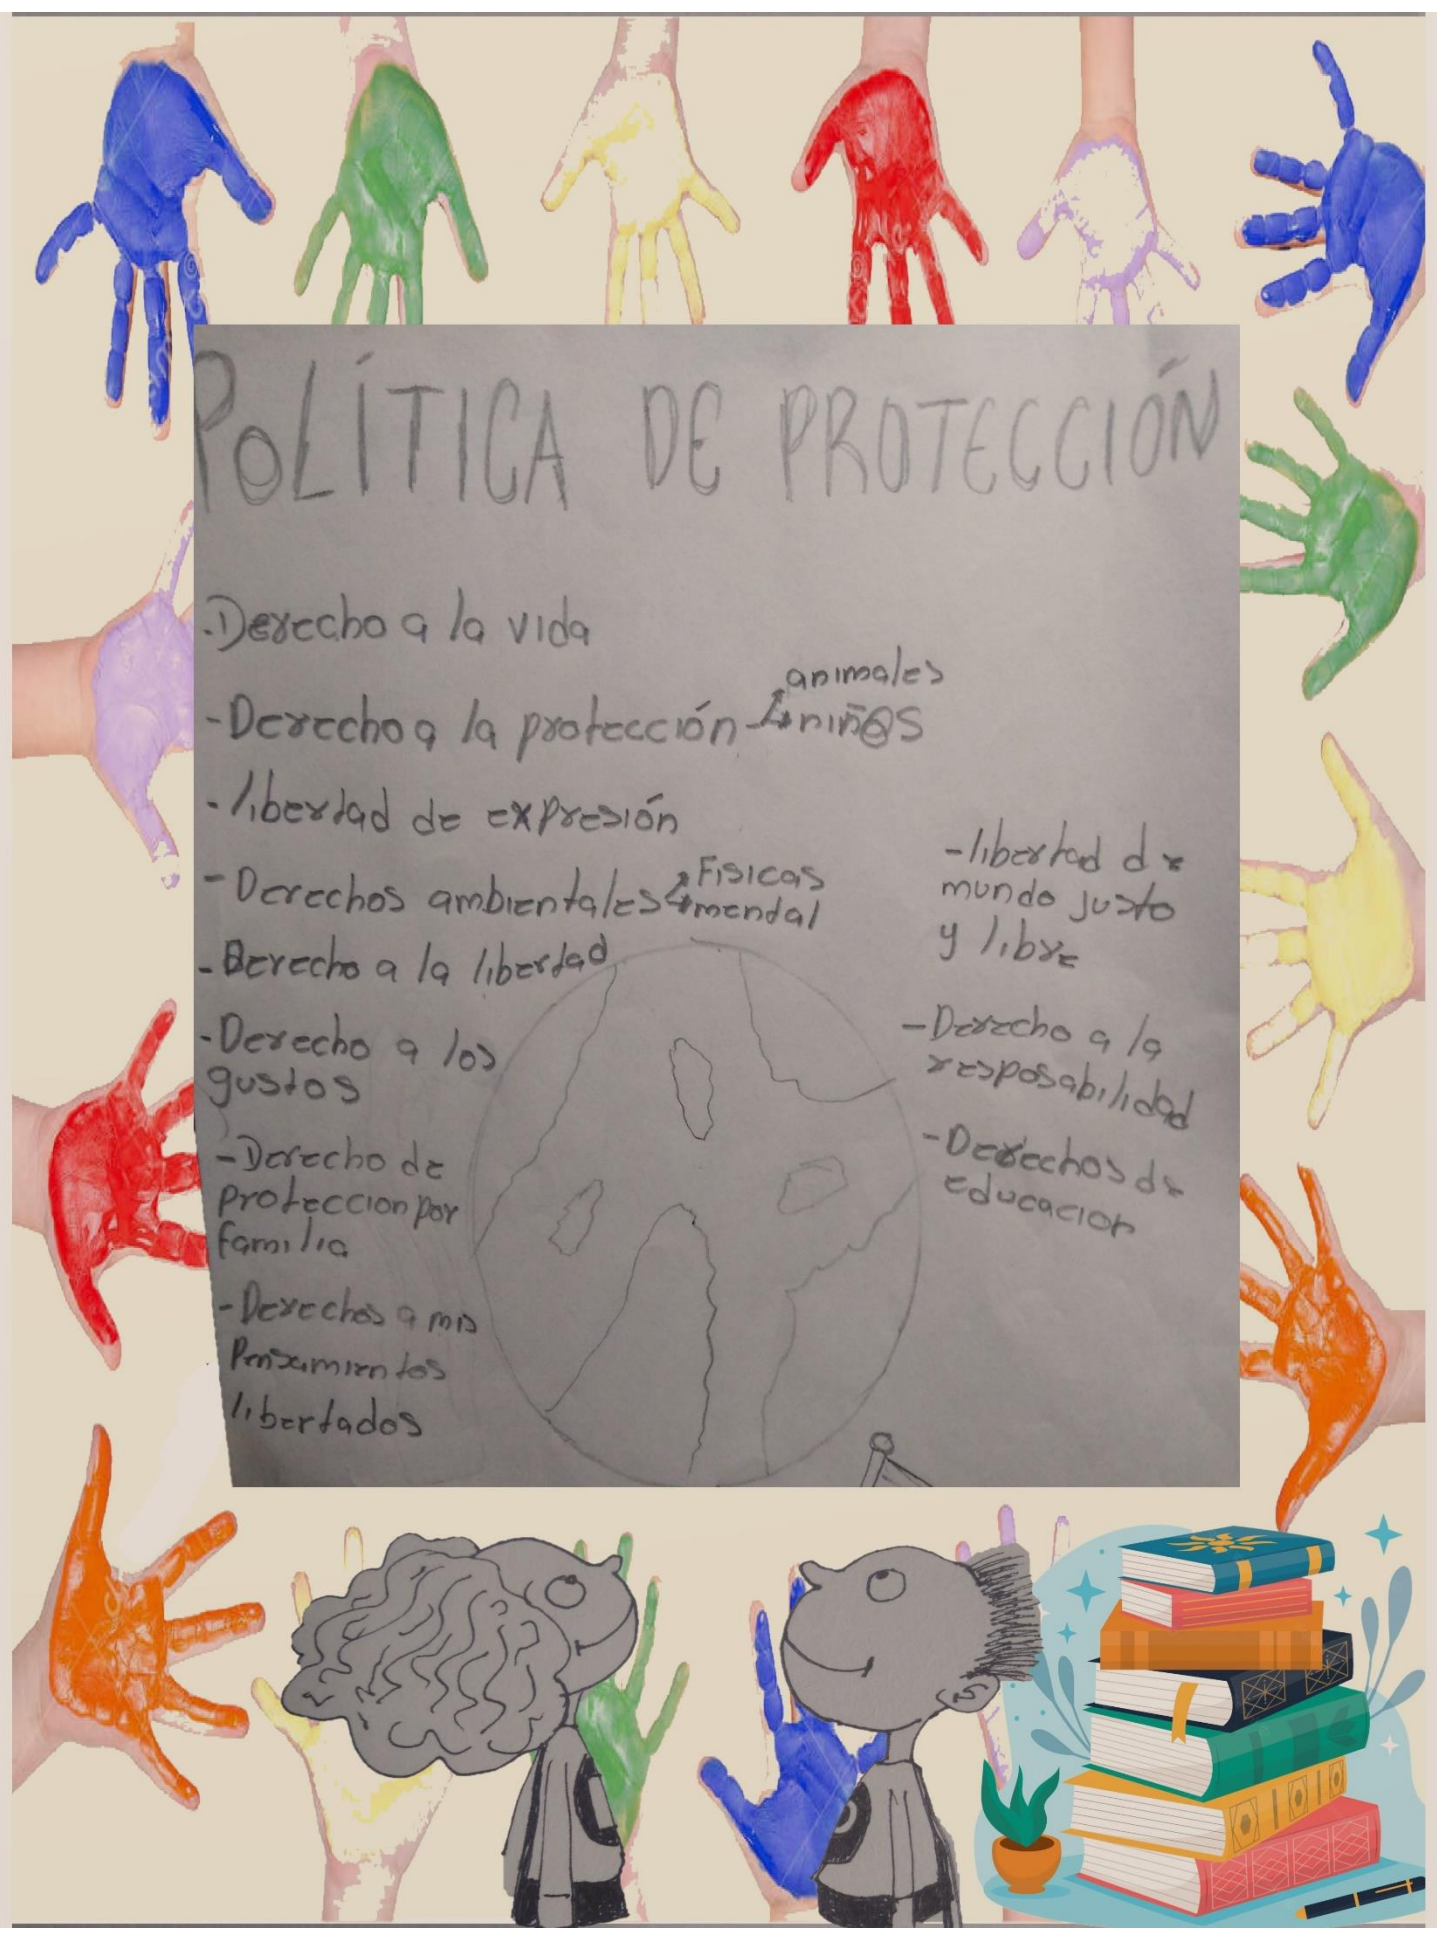 POLÍTICA DE PROTECCIÓN
-Derecho a la vida
-Derecho a la protección animales
niñ@s
-libertad de expresión
-Derechos ambientales Fisicas
mendal
-Derecho a la libertad
-Derecho a los
gustos
-Derecho de
proteccion por
familia
-Derechos a mis
Pensamientos
libertados
-libertad de
mundo justo
y libre
-Derecho a la
resposabilidad
-Derechos de
educacion